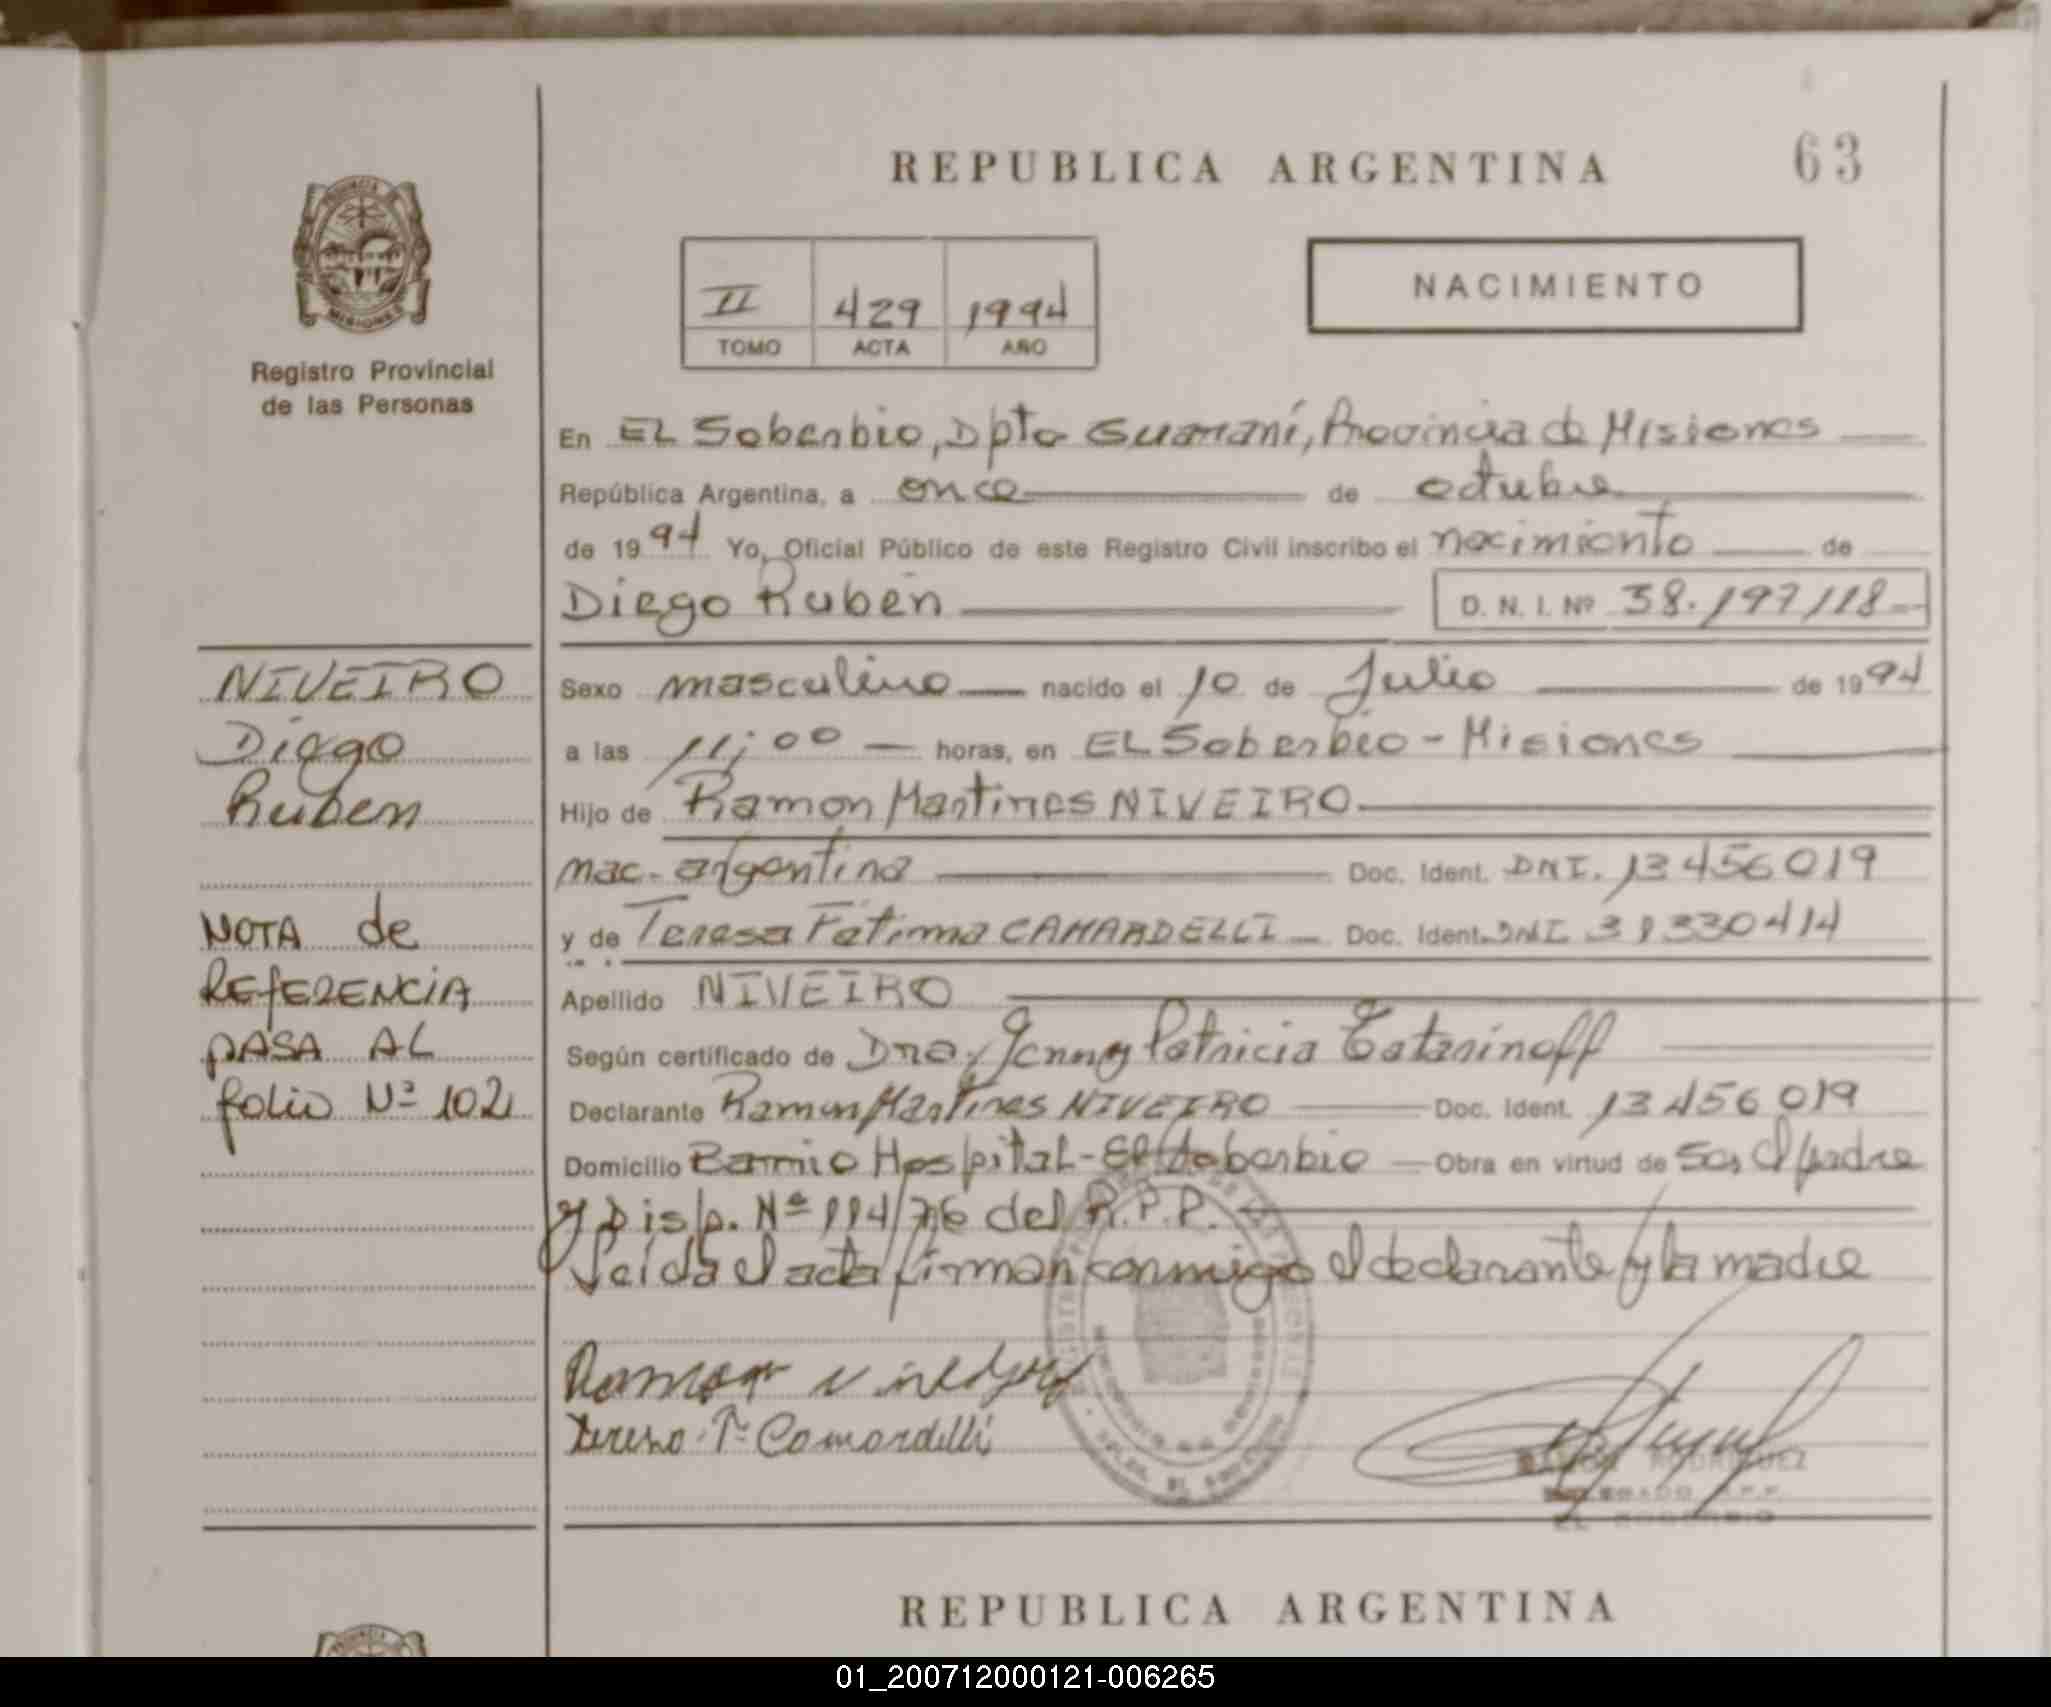 REPUBLICA ARGENTINA
63
PROVINCIA
MISIONES
Registro Provincial
de las Personas
II 429 1994
TOMO ACTA AÑO
NACIMIENTO
En EL Soberbio, Dpto Guaraní, Provincia de Misiones
República Argentina, a once de octubre
de 1994 Yo, Oficial Público de este Registro Civil inscribo el nacimiento de
Diego Ruben D. N. I. Nº 38.197118
NIVEIRO
Diego
Ruben
NOTA de
REFERENCIA
PASA AL
folio Nº 102
Sexo masculino nacido el 10 de Julio de 1994
a las 11;00 horas, en EL Soberbio - Misiones
Hijo de Ramon Martines NIVEIRO
nac. argentina Doc. Ident. DNI. 13456019
y de Teresa Fátima CAMARDELLI Doc. Ident. DNI
Apellido NIVEIRO
Según certificado de Dra. Jenny Patricia Tatarinoff
Declarante Ramon Martines NIVEIRO Doc. Ident. 13456019
Domicilio Barrio Hospital - El Soberbio Obra en virtud de ser el padre
y Disp. Nº 114/76 del R.P.P.
Leída el acta firman conmigo el declarante y la madre
Ramon
Teresa F. Camardelli
RAMON RODRIGUEZ
DELEGADO R.P.P.
EL SOBERBIO
REPUBLICA ARGENTINA
PROVINCIA
01_200712000121-006265